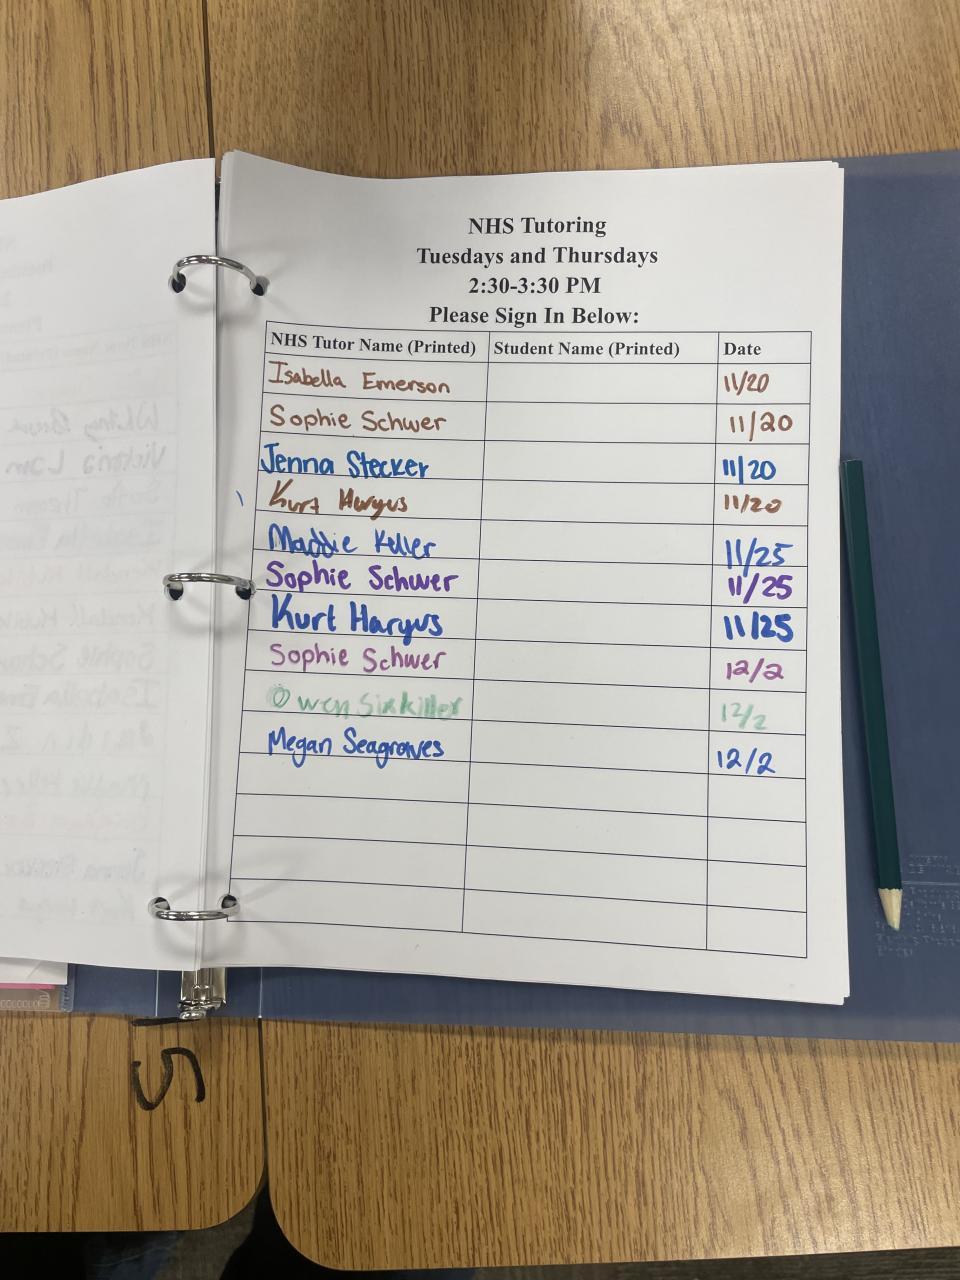 NHS Tutoring
Tuesdays and Thursdays
2:30-3:30 PM
Please Sign In Below:
NHS Tutor Name (Printed) Student Name (Printed) Date
Isabella Emerson 11/20
Sophie Schwer 11/20
Jenna Stecker 11/20
Kurt Hargus 11/20
Maddie Keller 11/25
Sophie Schwer 11/25
Kurt Hargus 11/25
Sophie Schwer 12/2
Owen Sixkiller 12/2
Megan Seagraves 12/2
5